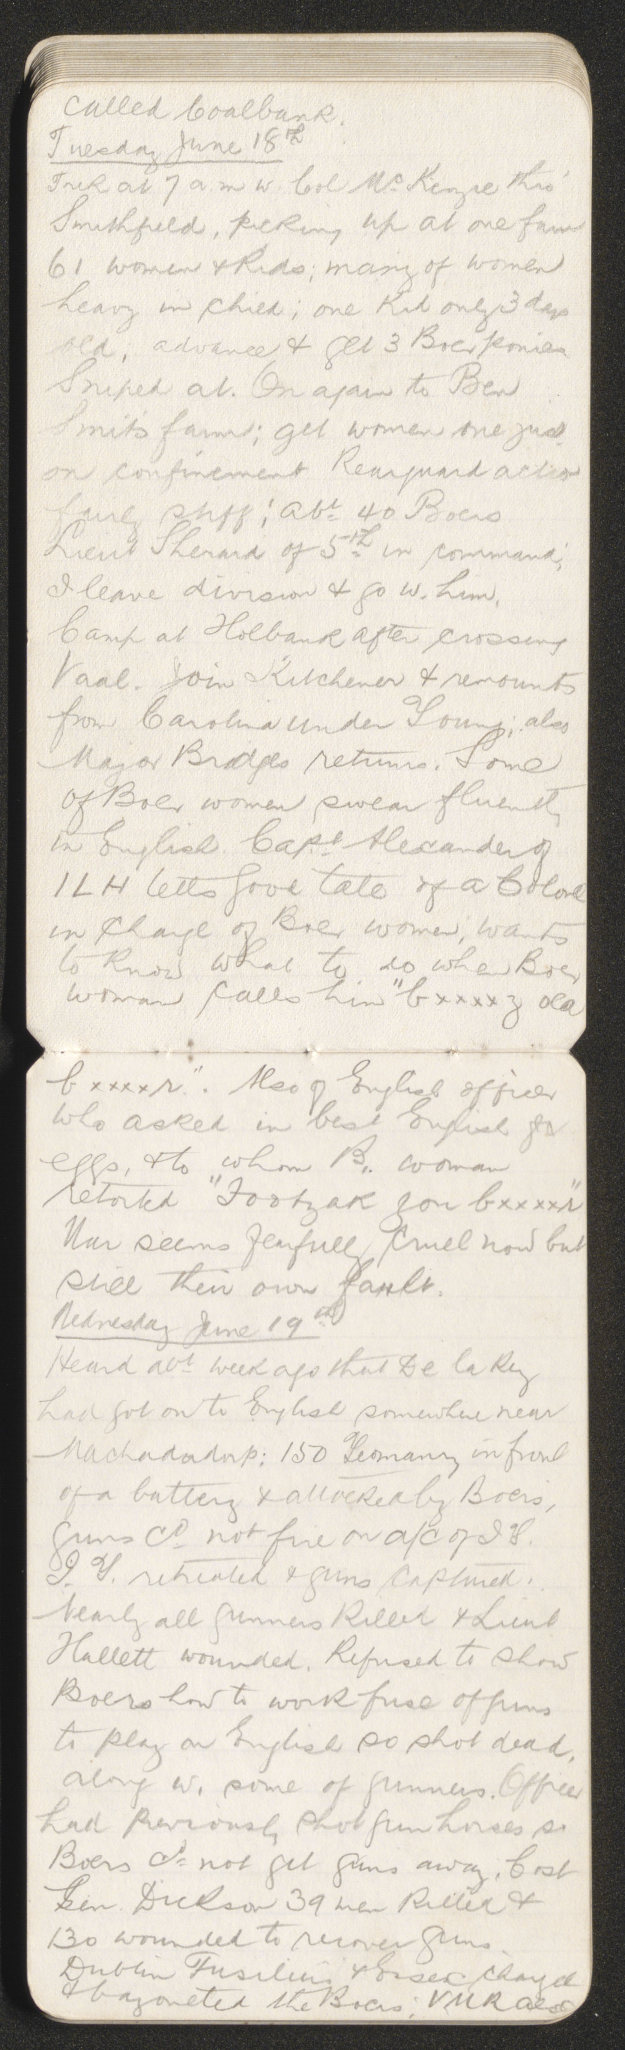 called Coalbank.
Tuesday June 18th
Trek at 7 a m w. Col McKenzie thro'
Smithfield, picking up at one farm
61 women & kids; many of women
heavy in child; one kid only 3 days
old, advance & get 3 Boer ponies
Sniped at. On again to Ben
Smits farm; get women one just
on confinement Rearguard action
fairly stiff; abt 40 Boers
Lieut Sherard of 5th in command;
I leave division & go w. him.
Camp at Holbank after crossing
Vaal. Join Kitchener & remounts
from Carolina under Young; also
Major Bridges returns. Some
of Boer women swear fluently
in English. Capt Alexander of
ILH tells good tale of a Colonel
in charge of Boer women; wants
to know what to do when Boer
woman calls him "bxxxxy old
bxxxxr". Also of English officer
who asked in best English for
eggs, & to whom B. woman
retorted "Footzak you bxxxxr"
War seems fearfully cruel now but
still their own fault.
Wednesday June 19th
Heard abt week ago that De la Rey
had got on to English somewhere near
Machadadorp; 150 Yeomanry in front
of a battery & attacked by Boers,
guns cd not fire on a/c of I.Y.
I.Y. retreated & guns captured.
Nearly all gunners killed & Lieut
Hallett wounded. Refused to show
Boers how to work fuse of guns
to play on English so shot dead,
along w. some of gunners. Officer
had previously shot gun horses so
Boers cd not get guns away. Cost
Gen. Dickson 39 men killed &
130 wounded to recover guns.
Dublin Fusiliers & Essex charged
& bayoneted the Boers; VMR also